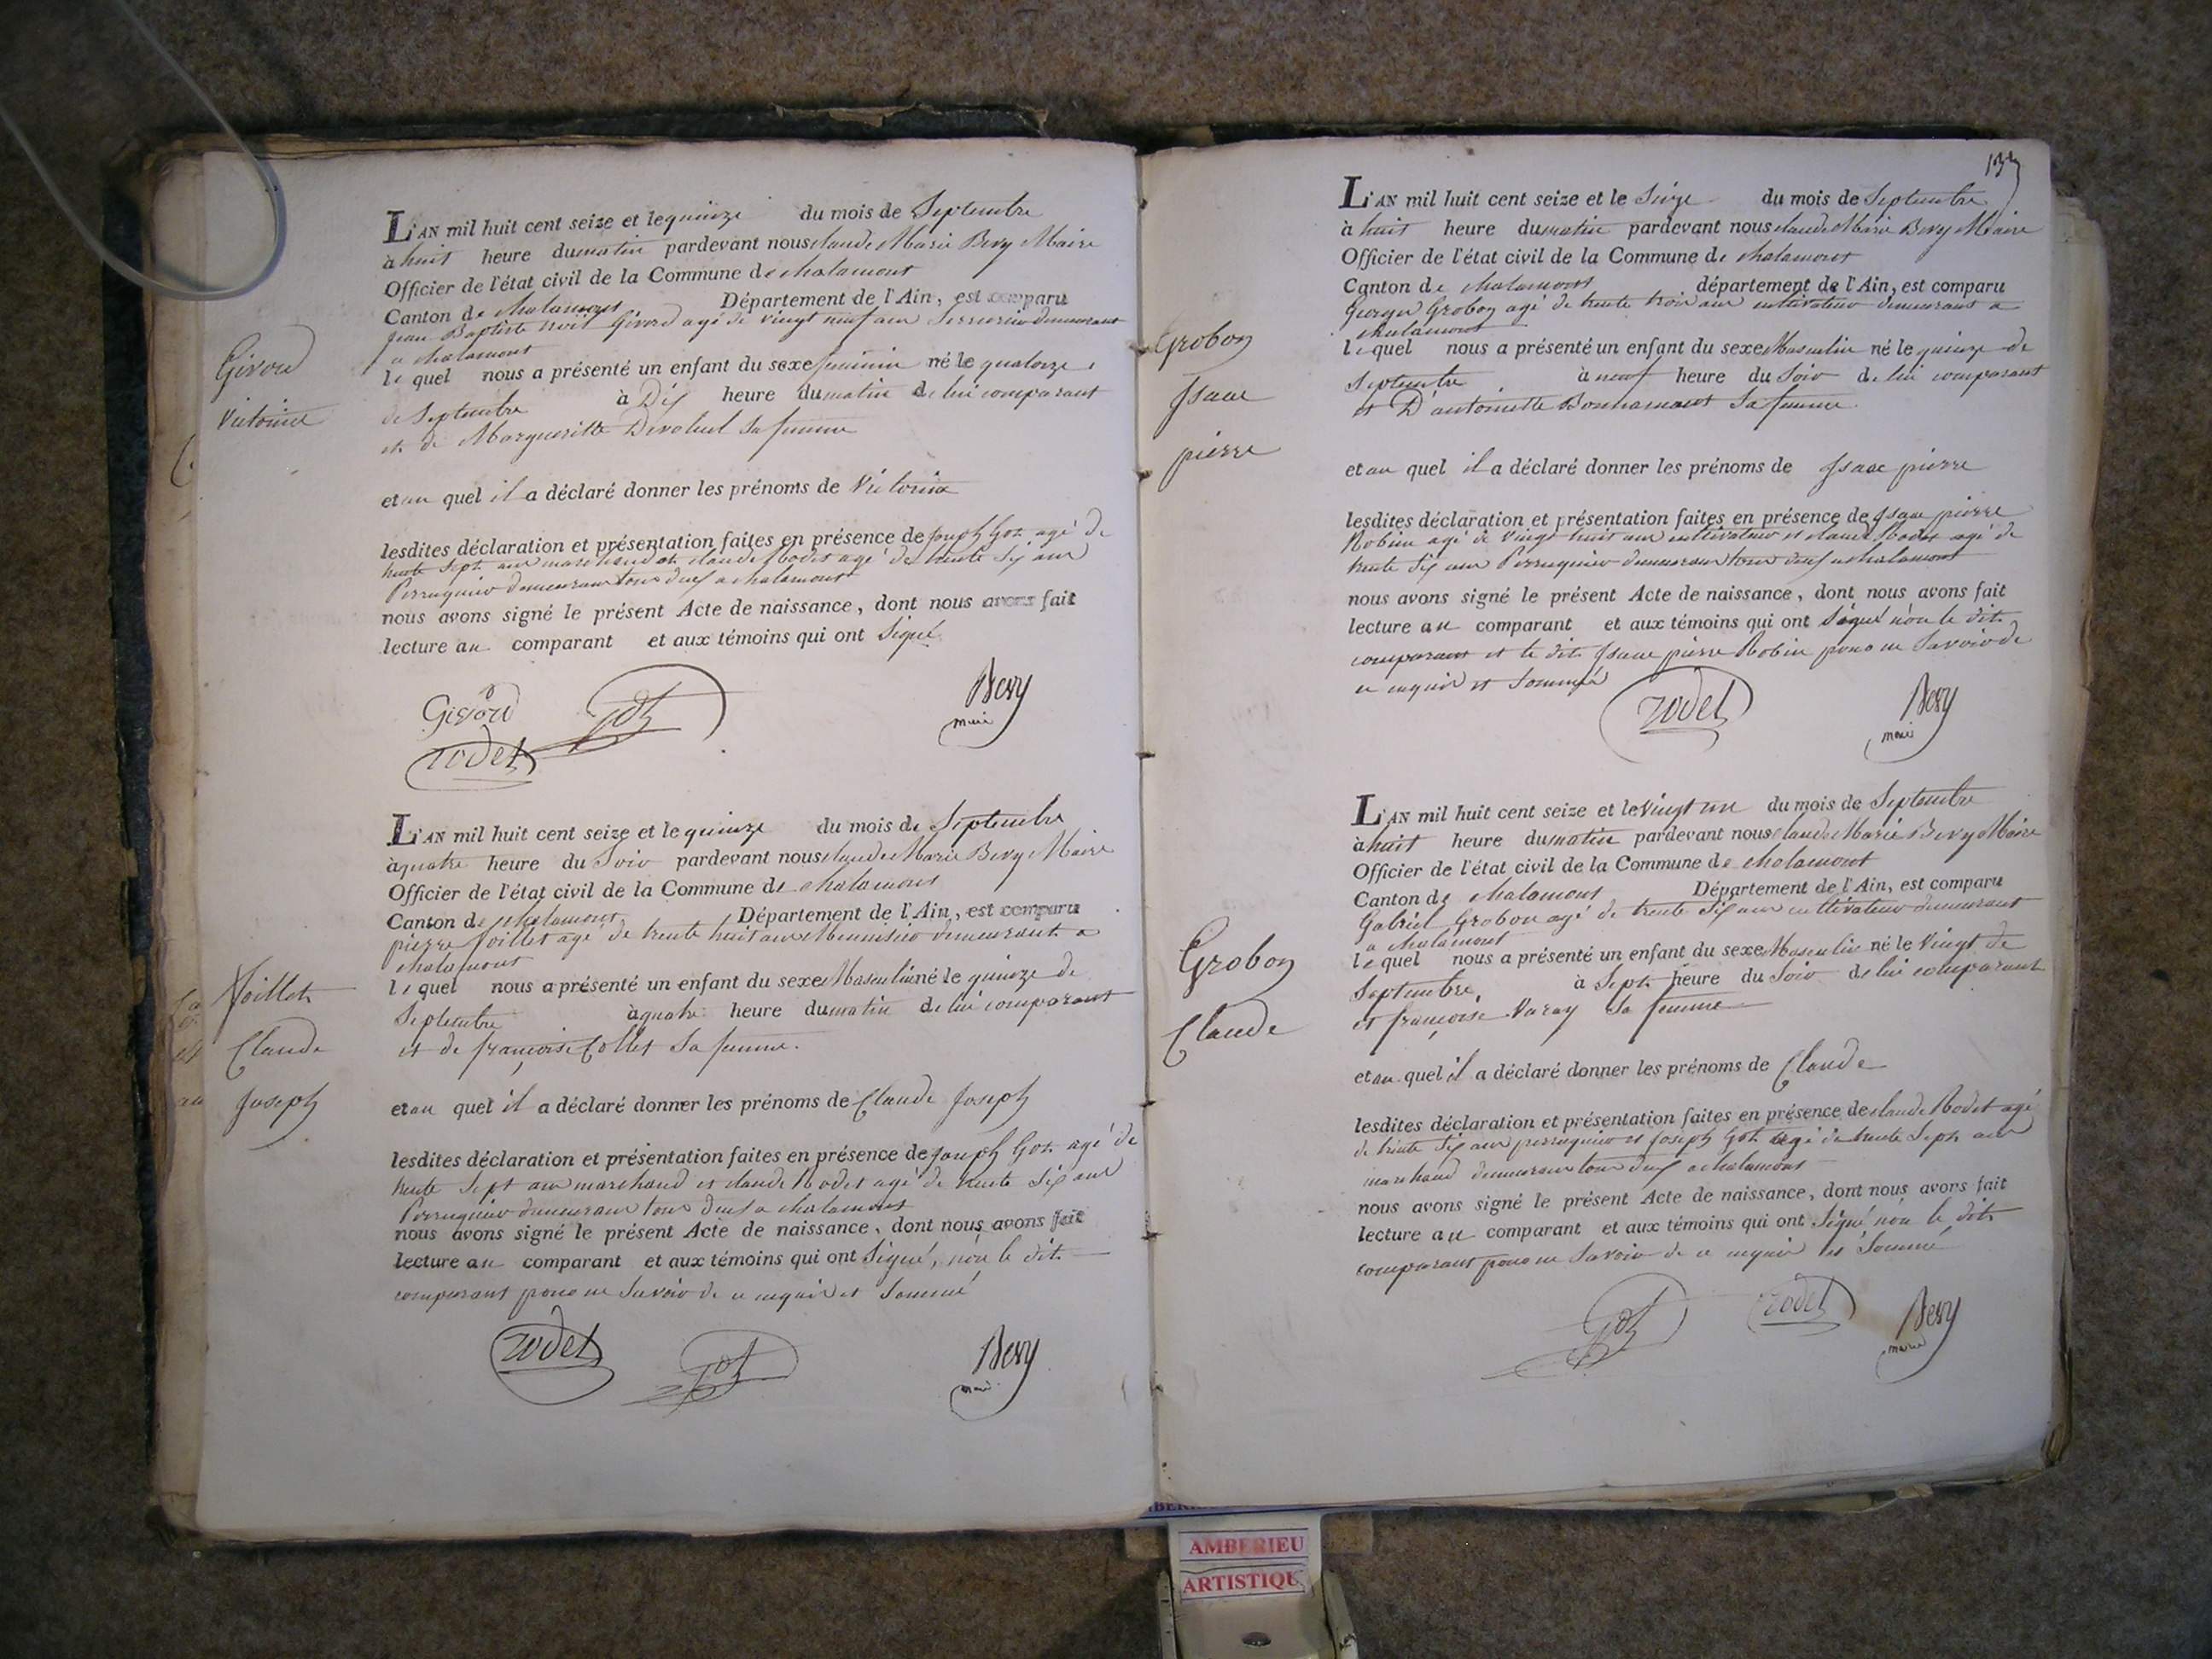 L'AN mil huit cent seize et le quinze du mois de Septembre
à huit heure du matin pardevant nous claude Marie Bevy Maire
Officier de l'état civil de la Commune de chalamont
Canton de chalamont Département de l'Ain, est comparu
jean Baptiste Givord agé de vingt neuf ans Serrurier demeurant
a chalamont
le quel nous a présenté un enfant du sexe feminin né le quatorze
de Septembre à Dix heure du matin de lui comparant
et de Margueritte sa femme
et au quel il a déclaré donner les prénoms de Victorine
lesdites déclaration et présentation faites en présence de joseph Got agé de
trente Sept ans marchand et claude Rodet agé de trente Six ans
Perruquier demeurans tous deux a chalamont
nous avons signé le présent Acte de naissance, dont nous avons fait
lecture au comparant et aux témoins qui ont Signé
Givord
Victorine
Givord Got Bevy
maire
rodet
L'AN mil huit cent seize et le quinze du mois de Septembre
à quatre heure du Soir pardevant nous claude Marie Bevy Maire
Officier de l'état civil de la Commune de chalamont
Canton de chalamont Département de l'Ain, est comparu
pierre Joillet agé de trente huit ans Menuisier demeurant a
chalamont
le quel nous a présenté un enfant du sexe Masculin né le quinze de
Septembre à quatre heure du matin de lui comparant
et de françoise Collet Sa femme.
et au quel il a déclaré donner les prénoms de Claude Joseph
lesdites déclaration et présentation faites en présence de joseph Got agé de
trente Sept ans marchand et claude Rodet agé de trente Six ans
Perruquier demeurans tous deux a chalamont
nous avons signé le présent Acte de naissance, dont nous avons fait
lecture au comparant et aux témoins qui ont Signé, non le dit
comparant pour ne Savoir de ce enquis et Sommé
Joillet
Claude
Joseph
rodet Got Bevy
maire
L'AN mil huit cent seize et le Seize du mois de Septembre
à huit heure du matin pardevant nous claude Marie Bevy Maire
Officier de l'état civil de la Commune de chalamont
Canton de chalamont département de l'Ain, est comparu
Grobon agé de trente trois ans cultivateur demeurant a
chalamont
le quel nous a présenté un enfant du sexe Masculin né le quinze de
Septembre à neuf heure du Soir de lui comparant
et D'antoinette Bonnamour Sa femme.
et au quel il a déclaré donner les prénoms de Isaac pierre
lesdites déclaration et présentation faites en présence de Isaac pierre
Robin agé de Vingt huit ans cultivateur et claude Rodet agé de
trente Six ans Perruquier demeurans tous deux a chalamont
nous avons signé le présent Acte de naissance, dont nous avons fait
lecture au comparant et aux témoins qui ont Signé non le dit
comparant et le dit Isaac pierre Robin pour ne Savoir de
ce enquis et Sommé
Grobon
Isaac
pierre
rodet Bevy
maire
L'AN mil huit cent seize et le vingt un du mois de Septembre
à huit heure du matin pardevant nous claude Marie Bevy Maire
Officier de l'état civil de la Commune de chalamont
Canton de chalamont Département de l'Ain, est comparu
Gabriel Grobon agé de trente Six ans cultivateur demeurant
a chalamont
le quel nous a présenté un enfant du sexe Masculin né le Vingt de
Septembre, à Sept heure du Soir de lui comparant
et françoise Varay Sa femme
et au quel il a déclaré donner les prénoms de Claude
lesdites déclaration et présentation faites en présence de claude Rodet agé
de trente Six ans perruquier et joseph Got agé de trente Sept ans
marchand demeurans tous deux a chalamont
nous avons signé le présent Acte de naissance, dont nous avons fait
lecture au comparant et aux témoins qui ont Signé non le dit
comparant pour ne Savoir de ce enquis et Sommé
Grobon
Claude
Got rodet Bevy
maire
AMBERIEU
ARTISTIQU